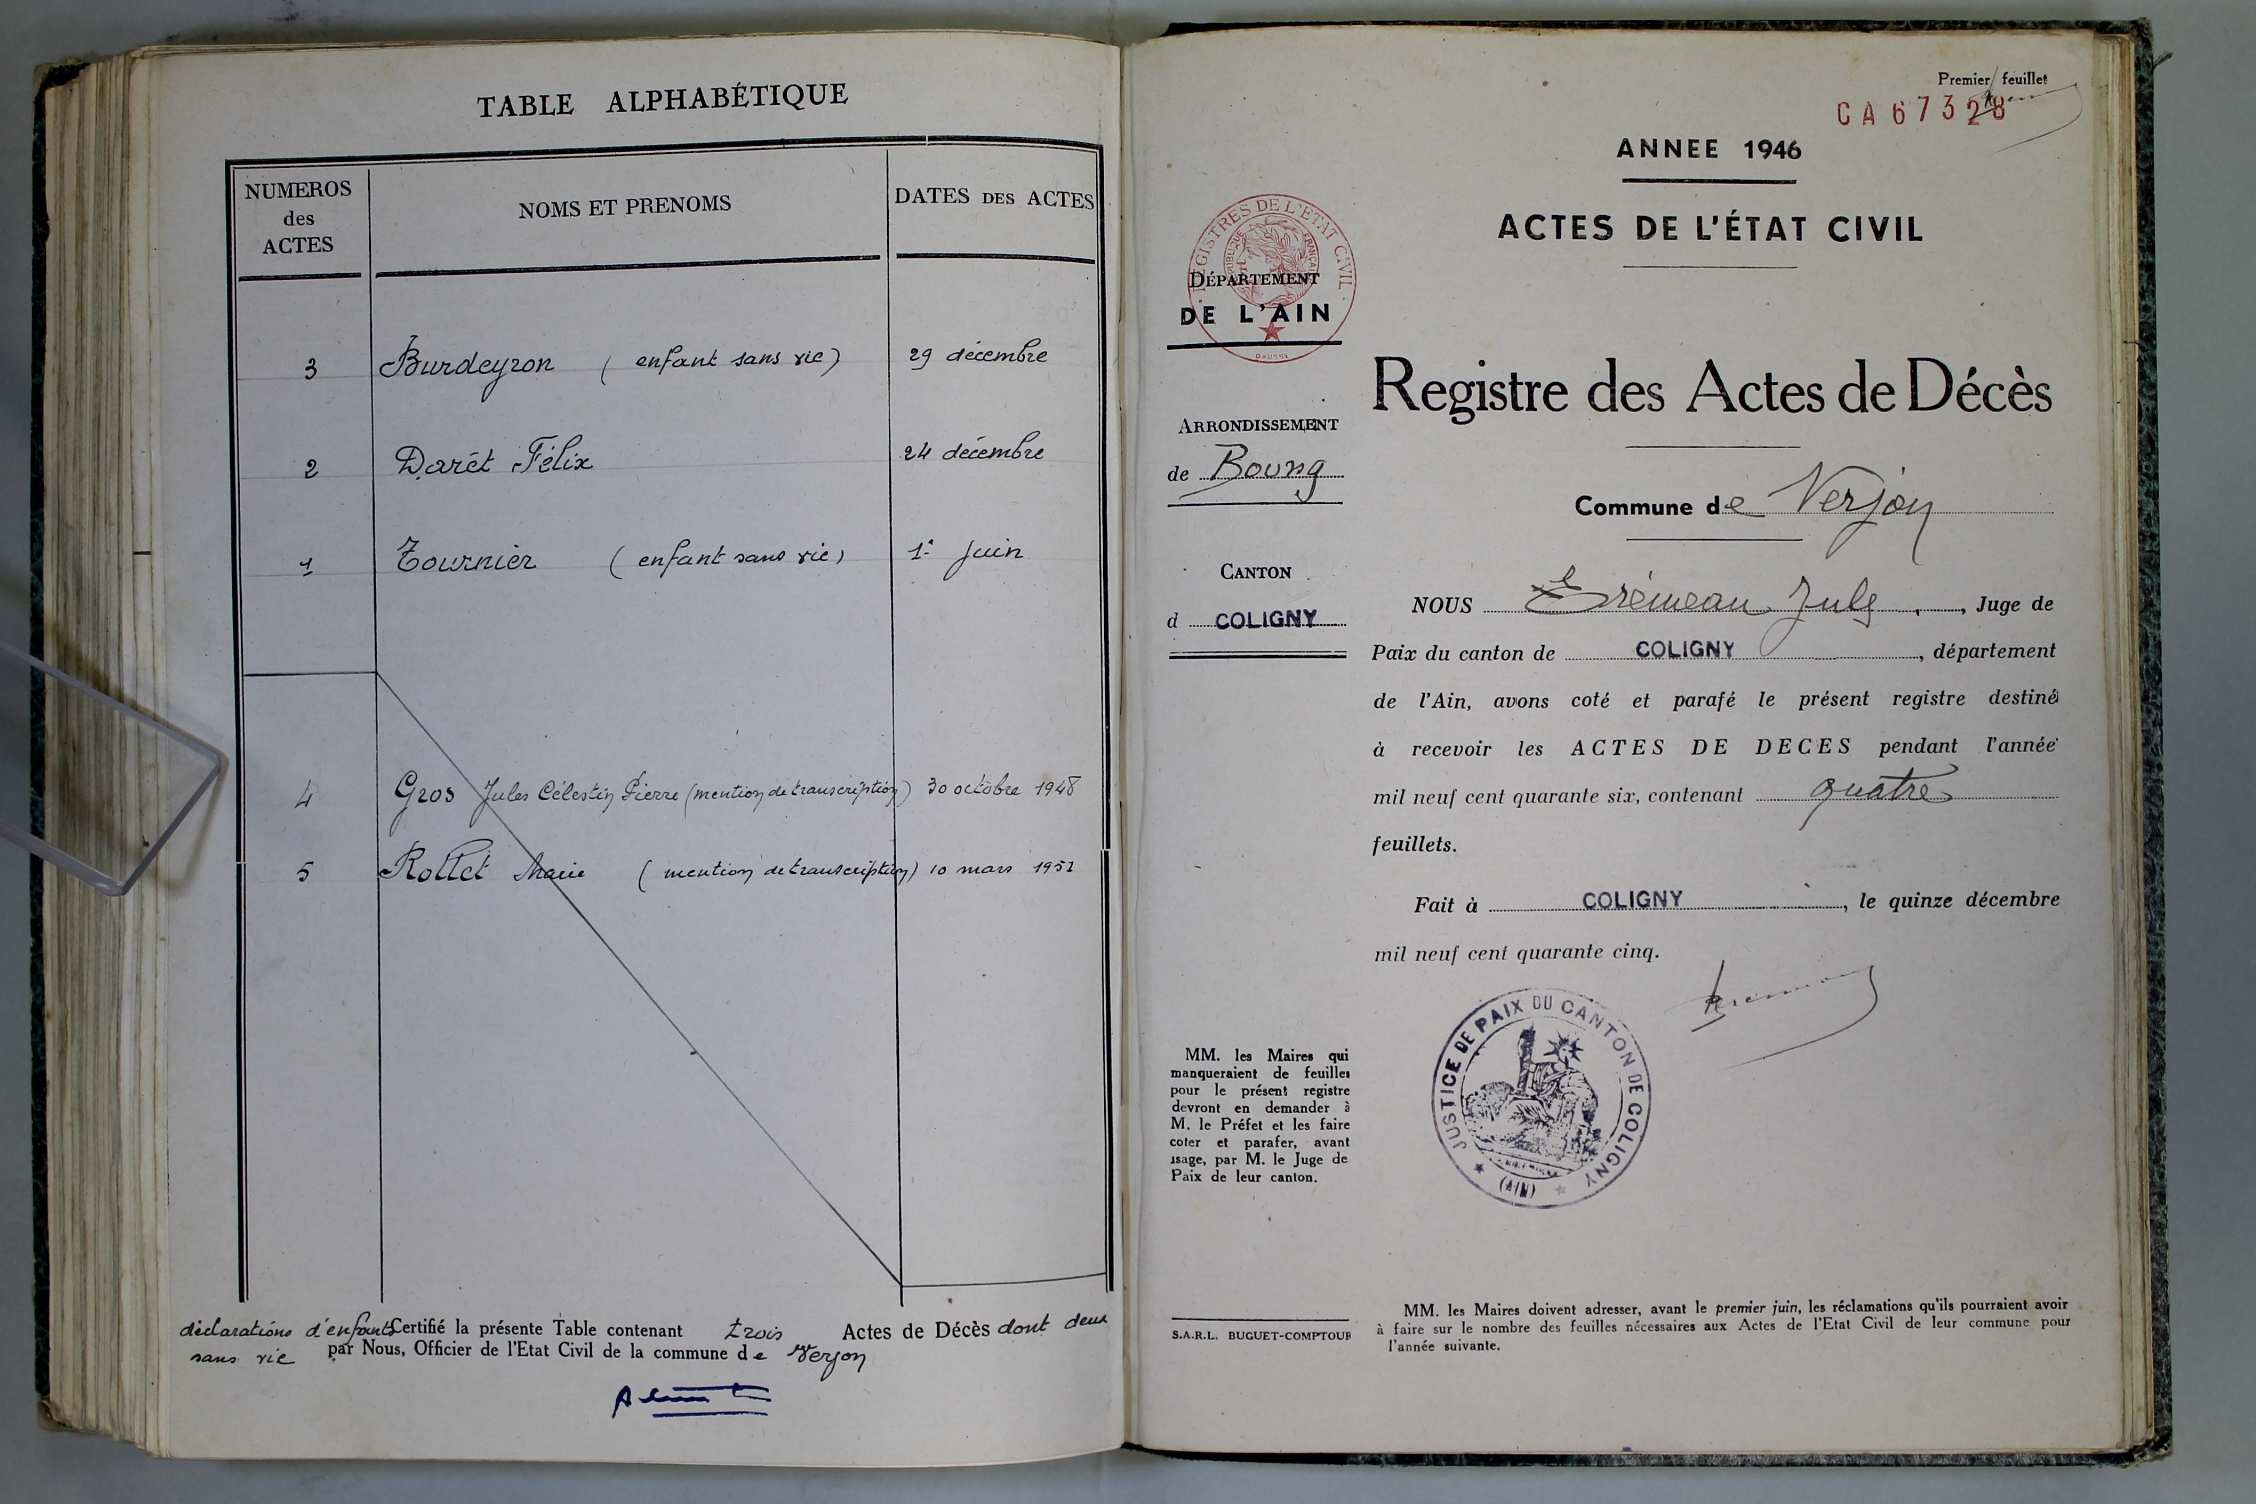 TABLE ALPHABÉTIQUE
NUMEROS
des
ACTES
NOMS ET PRENOMS
DATES DES ACTES
3 Burdeyron ( enfant sans vie) 29 décembre
2 Darêt Félix 24 décembre
1 Tournier ( enfant sans vie) 1er Juin
4 Gros Jules Célestin Pierre (mention de transcription) 30 octobre 1948
5 Rollet Marie ( mention de transcription) 10 mars 1951
déclarations d'enfants Certifié la présente Table contenant trois Actes de Décès dont deux
sans vie par Nous, Officier de l'Etat Civil de la commune de Verjon
Premier feuillet
CA 67328
ANNEE 1946
ACTES DE L'ÉTAT CIVIL
REGISTRES DE L'ETAT CIVIL
RÉPUBLIQUE FRANÇAISE
DAUSSY
DÉPARTEMENT
DE L'AIN
Registre des Actes de Décès
ARRONDISSEMENT
de Bourg
Commune de Verjon
CANTON
d COLIGNY
NOUS Jules, Juge de
Paix du canton de COLIGNY, département
de l'Ain, avons coté et parafé le présent registre destiné
à recevoir les ACTES DE DECES pendant l'année
mil neuf cent quarante six, contenant quatre
feuillets.
Fait à COLIGNY, le quinze décembre
mil neuf cent quarante cinq.
JUSTICE DE PAIX DU CANTON DE COLIGNY
(AIN)
MM. les Maires qui
manqueraient de feuilles
pour le présent registre
devront en demander à
M. le Préfet et les faire
coter et parafer, avant
usage, par M. le Juge de
Paix de leur canton.
S.A.R.L. BUGUET-COMPTOUR
MM. les Maires doivent adresser, avant le premier juin, les réclamations qu'ils pourraient avoir
à faire sur le nombre des feuilles nécessaires aux Actes de l'Etat Civil de leur commune pour
l'année suivante.